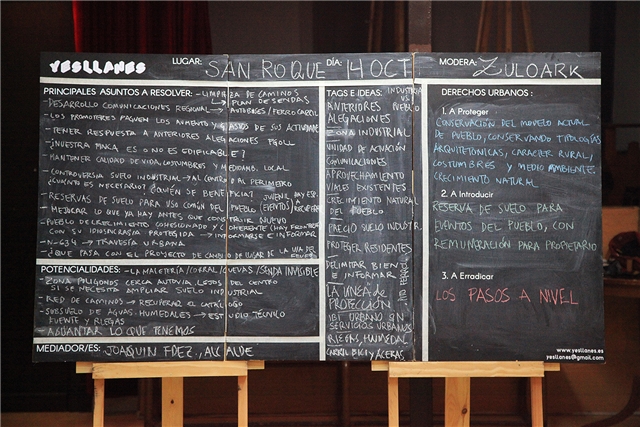 YESLLANES
LUGAR: SAN ROQUE DÍA: 14 OCT MODERA: ZULOARK
PRINCIPALES ASUNTOS A RESOLVER: - LIMPIEZA DE CAMINOS
- DESARROLLO COMUNICACIONES REGIONAL → PLAN DE SENDAS
→ AUTOBUSES / FERROCARRIL
- LOS PROMOTORES PAGUEN LOS AUMENTO Y GASTOS DE SUS ACTUACIONES
- TENER RESPUESTA A ANTERIORES ALEGACIONES PGOU
- ¿NUESTRA FINCA ES O NO ES EDIFICABLE?
- MANTENER CALIDAD DE VIDA, COSTUMBRES Y MEDIAMB. LOCAL
- CONTROVERSIA SUELO INDUSTRIAL → AL CENTRO O AL PERIMETRO
¿CUANTO ES NECESARIO? ¿QUIÉN SE BENEFICIA?
- RESERVAS DE SUELO PARA USO COMÚN DEL PUEBLO (EVENTOS)
- MEJORAR LO QUE YA HAY ANTES QUE CONSTRUIR NUEVO
- PUEBLO DE CRECIMIENTO COHESIONADO Y COHERENTE
CON SU IDIOSINCRASIA PROTEGIDA → INFORMARSE E INFORMAR
- N-634 → TRAVESÍA URBANA
- ¿QUE PASA CON EL PROYECTO DE CAMBIO DE LUGAR DE LA VIA DEL
POTENCIALIDADES: - LA MALETERÍA / CORRAL / CUEVAS / SENDA INVISIBLE
- ZONA POLIGONOS CERCA AUTOVIA, LEJOS DEL CENTRO
SI SE NECESITA AMPLIAR SUELO INDUSTRIAL
- RED DE CAMINOS → RECUPERAR EL CATÁLOGO
- SUBSUELO DE AGUAS. HUMEDALES → ESTUDIO TÉCNICO
FUENTE Y RIEGAS
- AGUANTAR LO QUE TENEMOS
MEDIADOR/ES: JOAQUIN FDEZ., ALCALDE
TAGS E IDEAS: INDUSTRIA VS PUEBLO
ANTERIORES
ALEGACIONES
ZONA INDUSTRIAL
UNIDAD DE ACTUACIÓN
COMUNICACIONES
APROVECHAMIENTO
VIALES EXISTENTES
CRECIMIENTO NATURAL
DEL PUEBLO
PRECIO SUELO INDUSTR.
PROTEGER RESIDENTES
DELIMITAR BIEN
E INFORMAR
LA LINEA DE
PROTECCIÓN
IBI URBANO SIN
SERVICIOS URBANOS
RIEGAS, HUMEDAL
CARRIL BICI Y ACERAS
DERECHOS URBANOS :
1. A Proteger
CONSERVACIÓN DEL MODELO ACTUAL
DE PUEBLO, CONSERVANDO TIPOLOGÍAS
ARQUITETÓNICAS, CARACTER RURAL,
COSTUMBRES Y MEDIO AMBIENTES
CRECIMIENTO NATURAL
2. A Introducir
RESERVA DE SUELO PARA
EVENTOS DEL PUEBLO, CON
REMUNERACIÓN PARA PROPIETARIO
3. A Erradicar
LOS PASOS A NIVEL
www.yesllanes.es
yesllanes@gmail.com